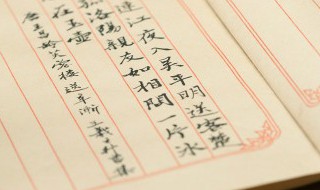 連江夜入吴平明送客楚
孤洛陽親友如相問一片冰
在玉壺
昌齡芙蓉樓送辛漸